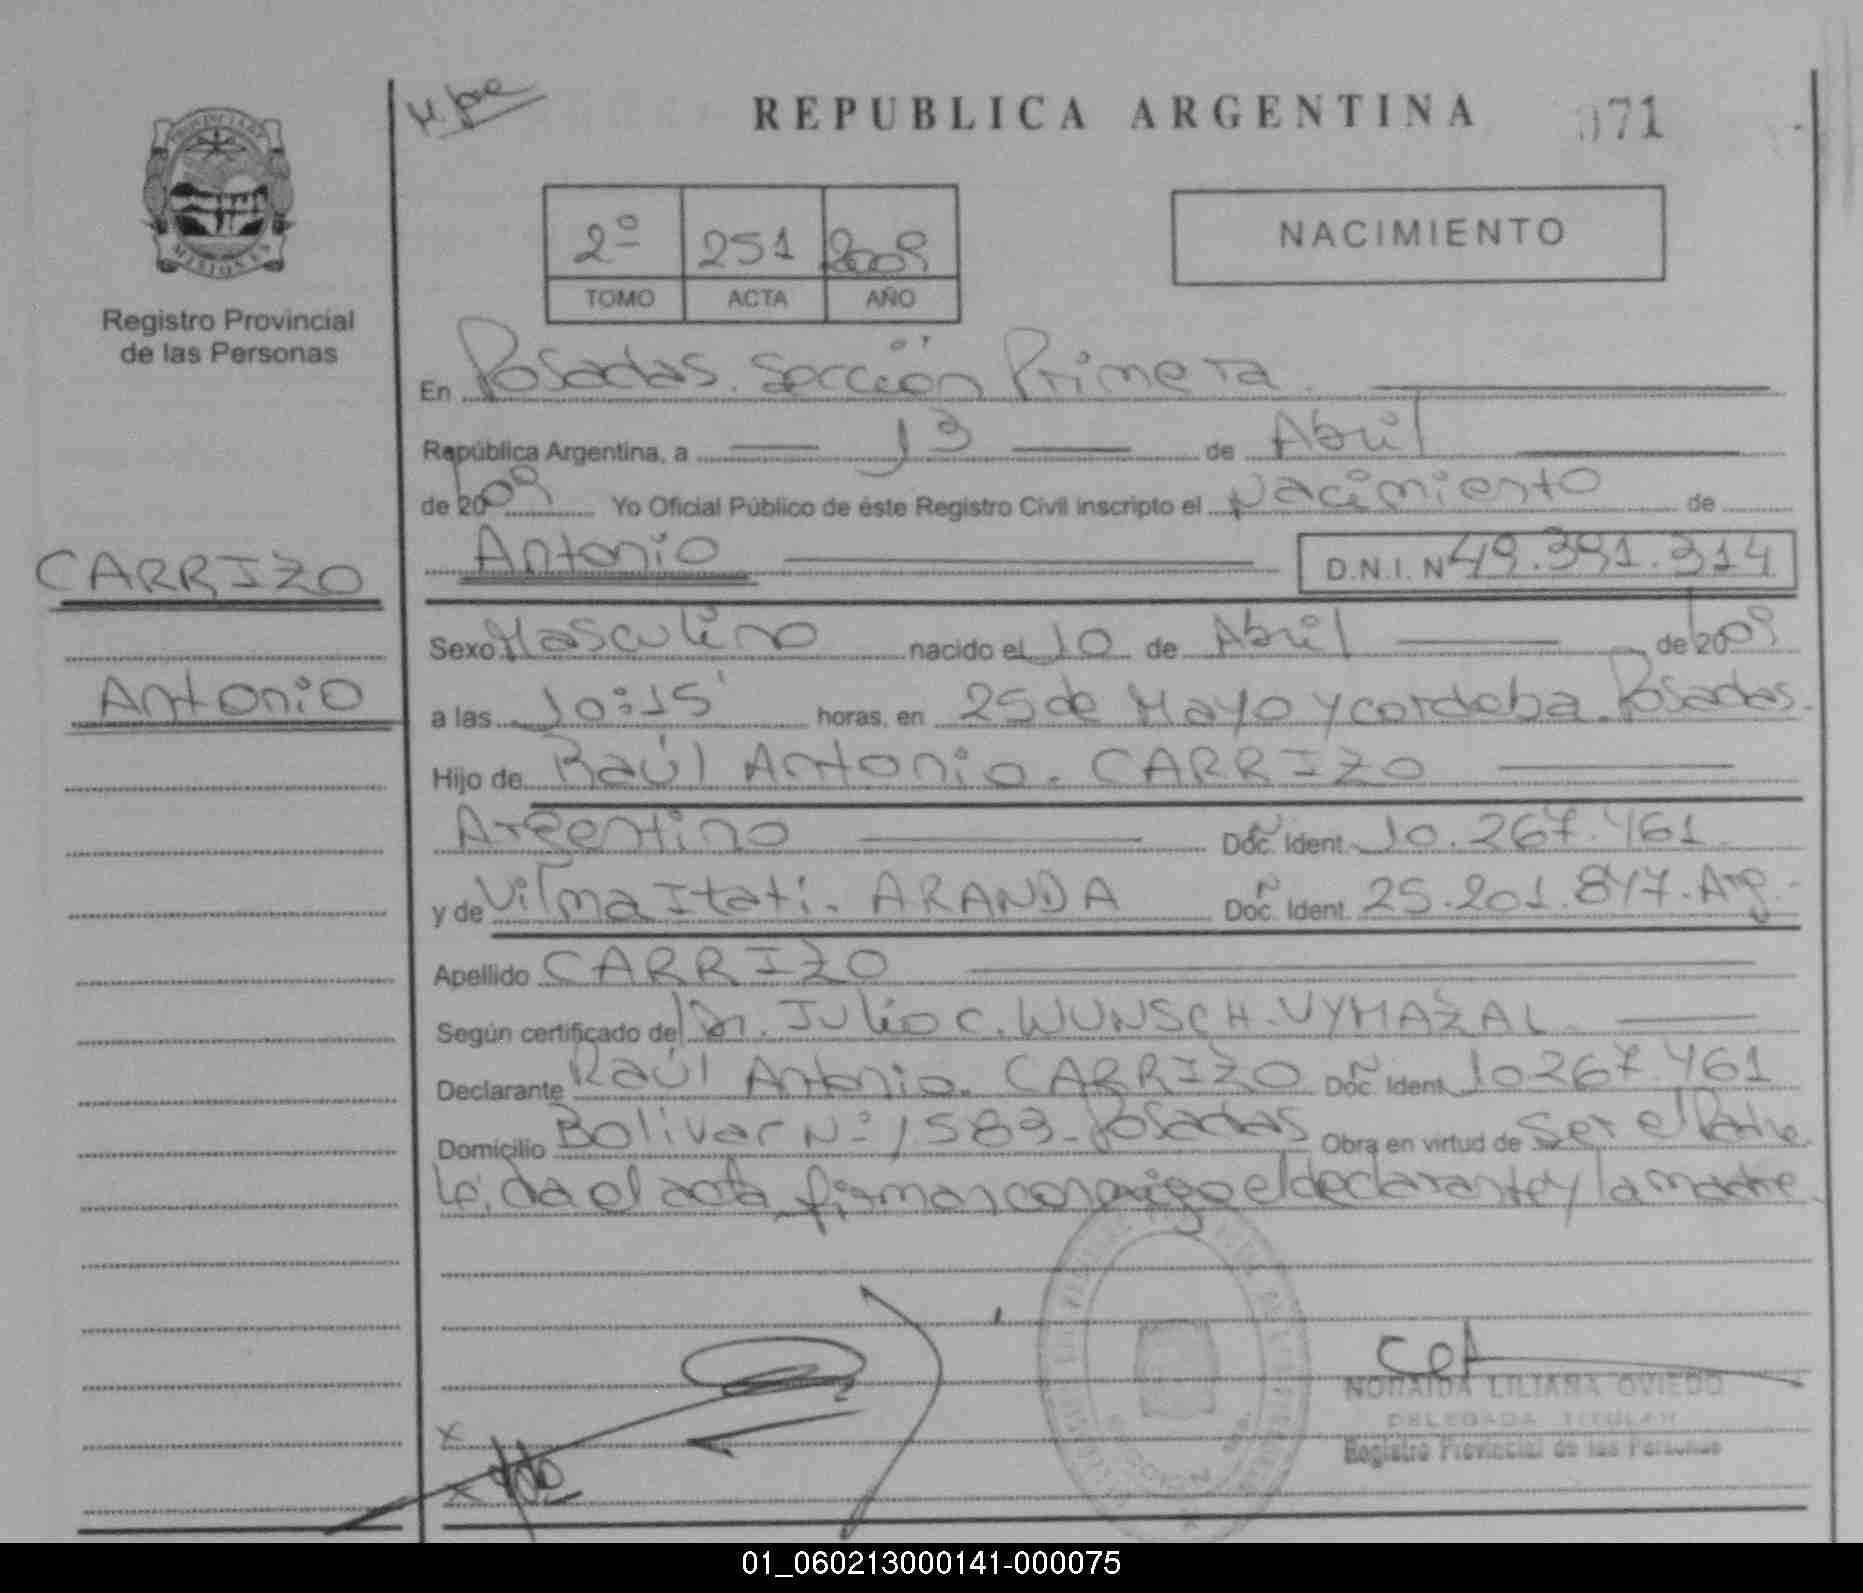 REPUBLICA ARGENTINA
071
PROVINCIA DE
MISIONES
Registro Provincial
de las Personas
2º 251 2009
TOMO ACTA AÑO
NACIMIENTO
En Posadas. Sección Primera.
República Argentina, a 13 de Abril
de 2009 Yo Oficial Público de éste Registro Civil inscripto el Nacimiento de
Antonio D.N.I. Nº 49.391.314
CARRIZO
Antonio
Sexo Masculino nacido el 10 de Abril de 2009
a las 10:15' horas, en 25 de Mayo y cordoba. Posadas.
Hijo de Raúl Antonio. CARRIZO
Argentino Doc. Ident. 10.267.461
y de Vilma Itati. ARANDA Doc. Ident. 25.201.847. Arg.
Apellido CARRIZO
Según certificado del Dr. Julio C. WUNSCH. VYMAZAL
Declarante Raúl Antonio. CARRIZO Doc. Ident. 10267.461
Domicilio Bolivar Nº 1583. Posadas Obra en virtud de Ser el Padre.
Leida el acta firman conmigo el declarante y la madre.
NORAIDA LILIANA OVIEDO
DELEGADA TITULAR
Registro Provincial de las Personas
01_060213000141-000075